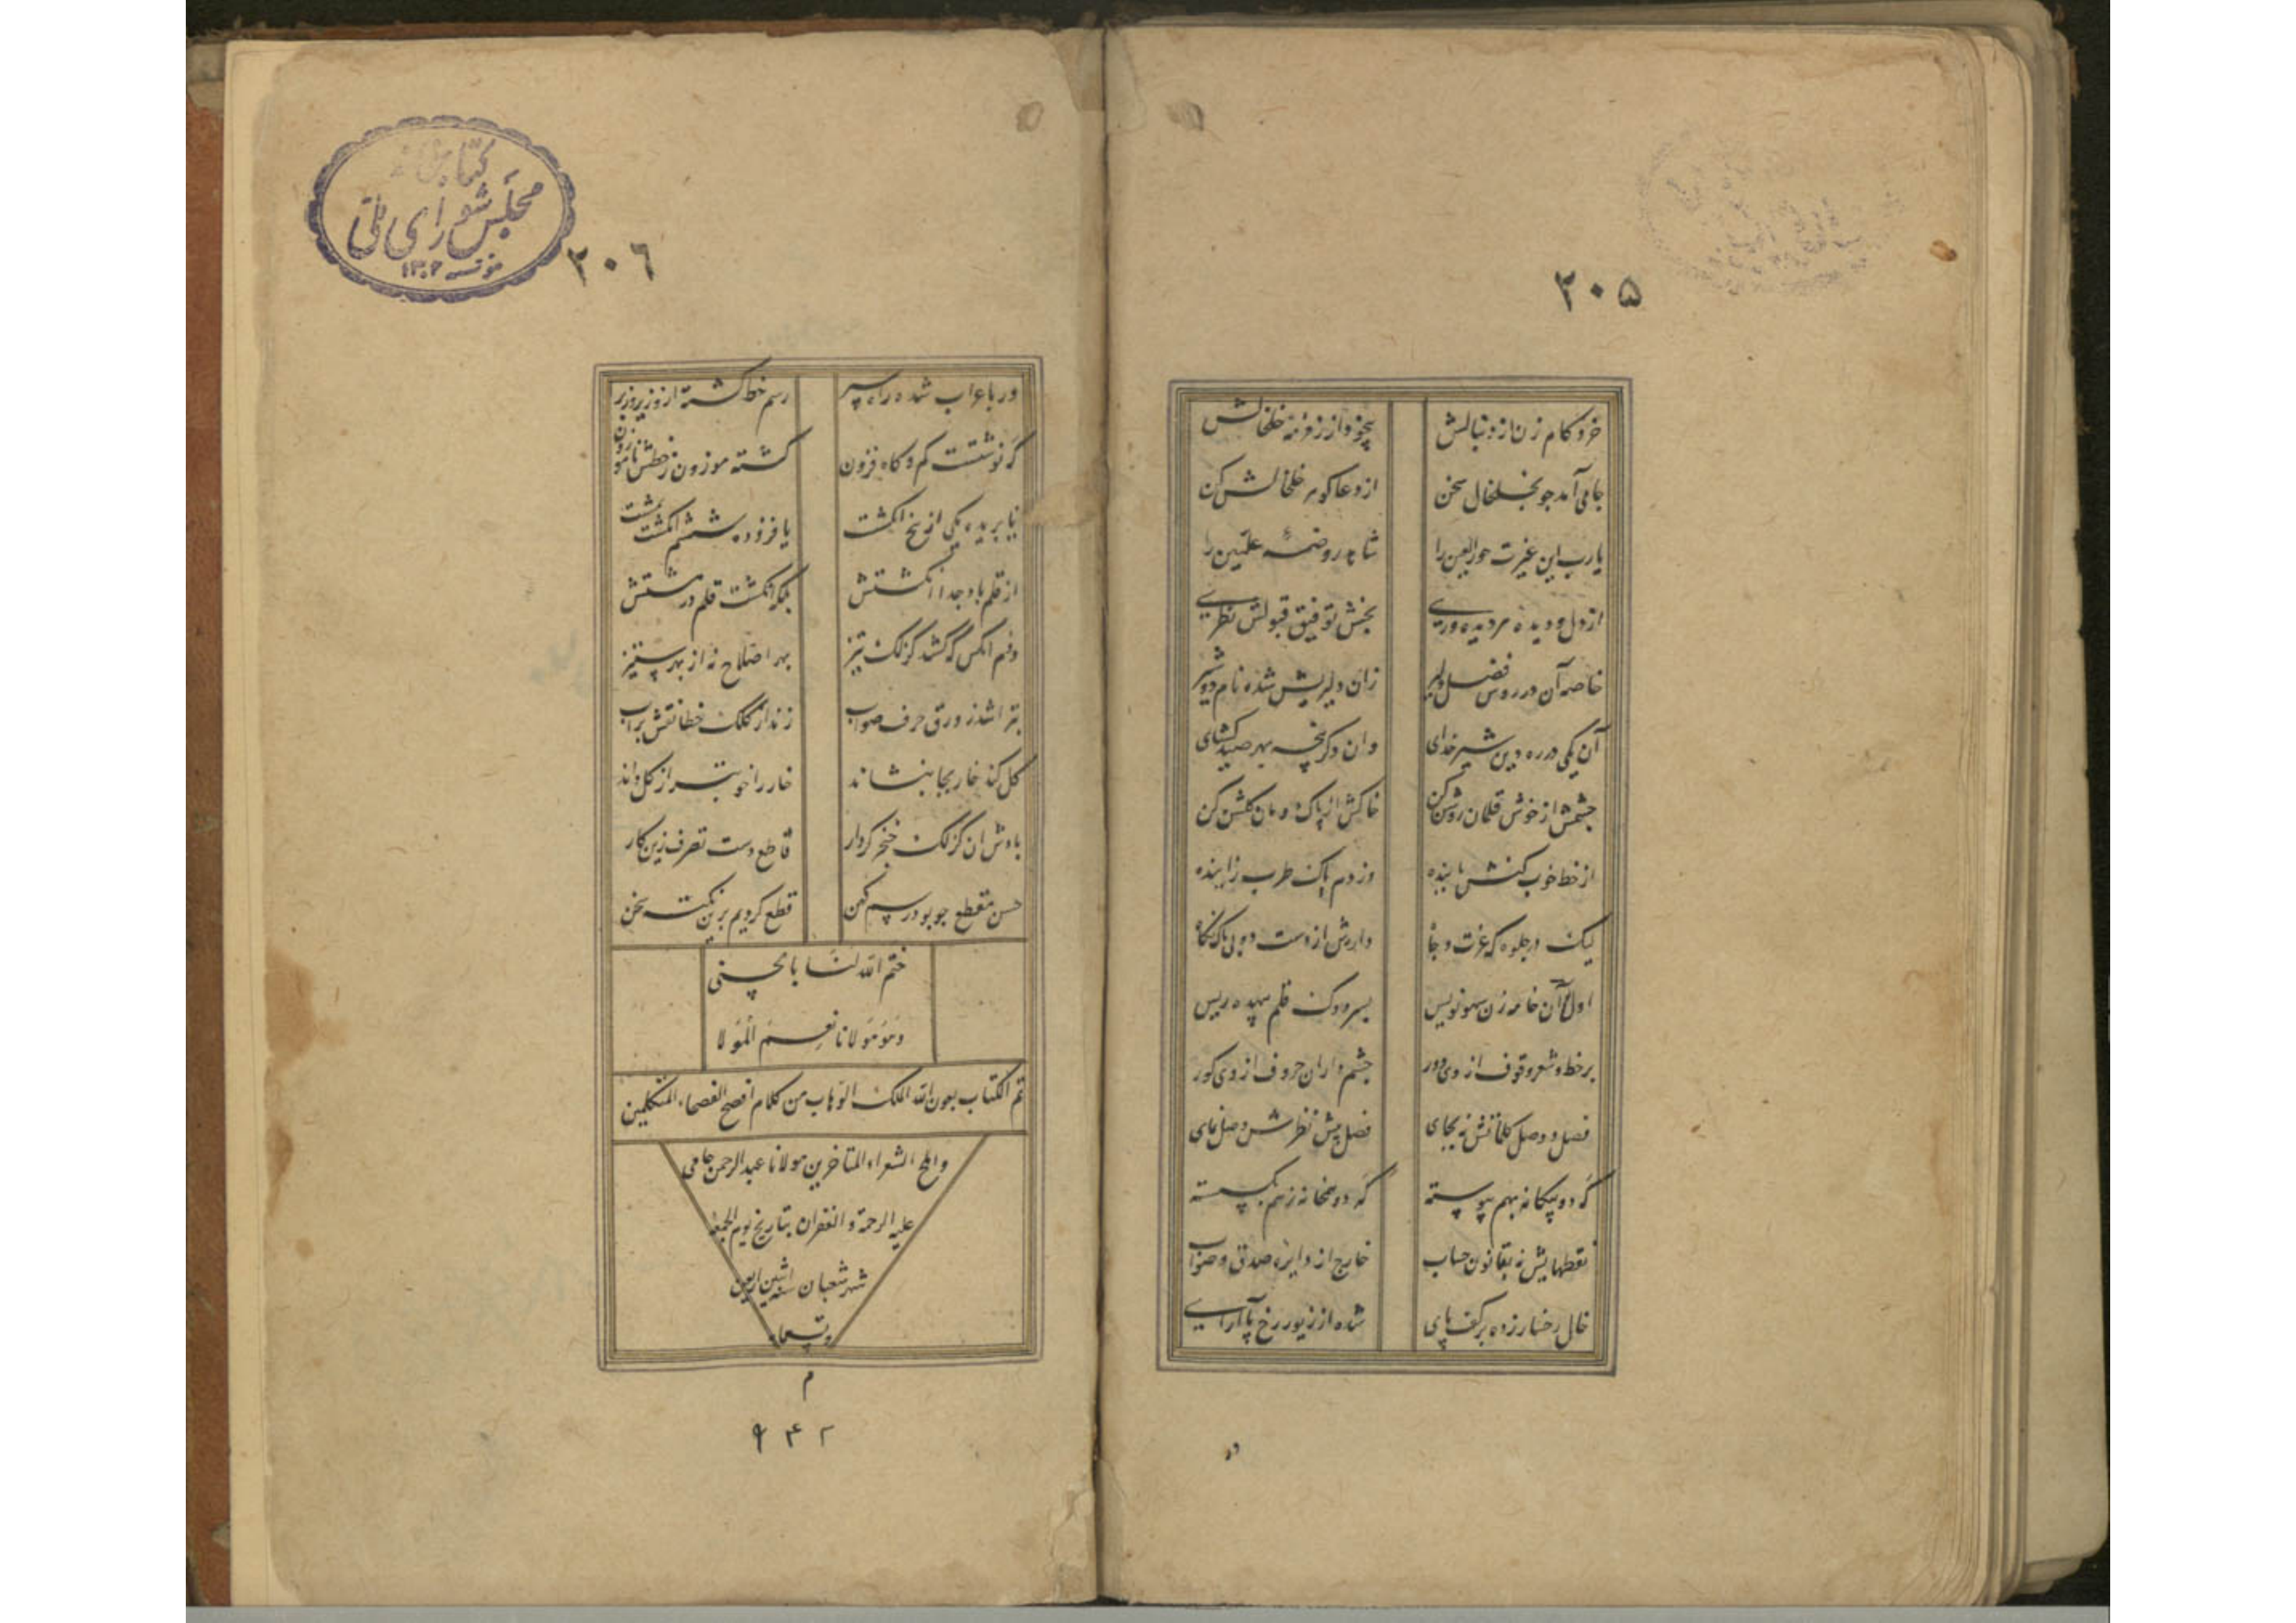 ۲۰۵
خردکام زن از دنبالش
بیخود از زمزمه خلخالش
جامی آمد چو بخلخال سخن
از دعا گوهر خلخالش کن
یارب این غیرت حورالعین را
شاهد روضه علیین را
از دل و دیده هر دیده وری
بخش توفیق قبولش نظری
خاصه آن در روش فضل دلیر
زان دلیریش شده نام دو شیر
آن یکی در ره دین شیر خدای
وان دگر پنجه بهر صید گشای
چشمش از خوش قلمان روشن کن
خاکش از پاک دمان گلشن کن
از خط خوب کنش پاینده
وز دم پاک طرب زاینده
لیک در جلوه گه عزت و جاه
دارش از دست دو بی باک نگاه
اول آن خامه زن سهو نویس
بسر دوک قلم بیهده ریس
بر خط و شعر وقوف از وی دور
چشم داران حروف از وی کور
فصل و وصل کلماتش نه بجای
فصل پیش نظرش وصل نمای
گه دو بیگانه بهم پیوسته
گه دو همخانه ز هم بگسسته
نقطهایش نه بقانون حساب
خارج از دایره صدق و صواب
خال رخسار زده بر کف پای
شده از زیور رخ پا آرای
ور
۲۰۶
کتابخانه
مجلس شورای ملی
مؤسسه ۱۳۰۲
ور باعراب شده راه سپر
رسم خط گشته ازو زیر و زبر
گه نوشتست کم و گاه فزون
گشته موزون ز خطش ناموزون
یا بریده یکی از پنج انگشت
یا فزوده ششم انگشت بمشت
از قلم باد جدا انگشتش
بلکه انگشت قلم در مشتش
دوم آنکس که کشد گزلک تیز
بهر اصلاح نه از بهر ستیز
بتراشد ز ورق حرف صواب
زند از کلک خطا نقش بر آب
گل کند خار بجا بنشاند
خار را خوبتر از گل داند
بادش آن گزلک خنجر کردار
قاطع دست تصرف زین کار
حسن مقطع چو بود رسم کهن
قطع کردیم برین نکته سخن
ختم الله لنا بالحسنی
وهو مولانا نعم المولا
تم الکتاب بعون الله الملک الوهاب من کلام افصح الفصحاء المتکلمین
واملح الشعراء المتاخرین مولانا عبدالرحمن جامی
علیه الرحمة و الغفران بتاریخ یوم الجمعه
شهر شعبان سنه اثنین اربعین
و تسعمایه
م
۹۴۲